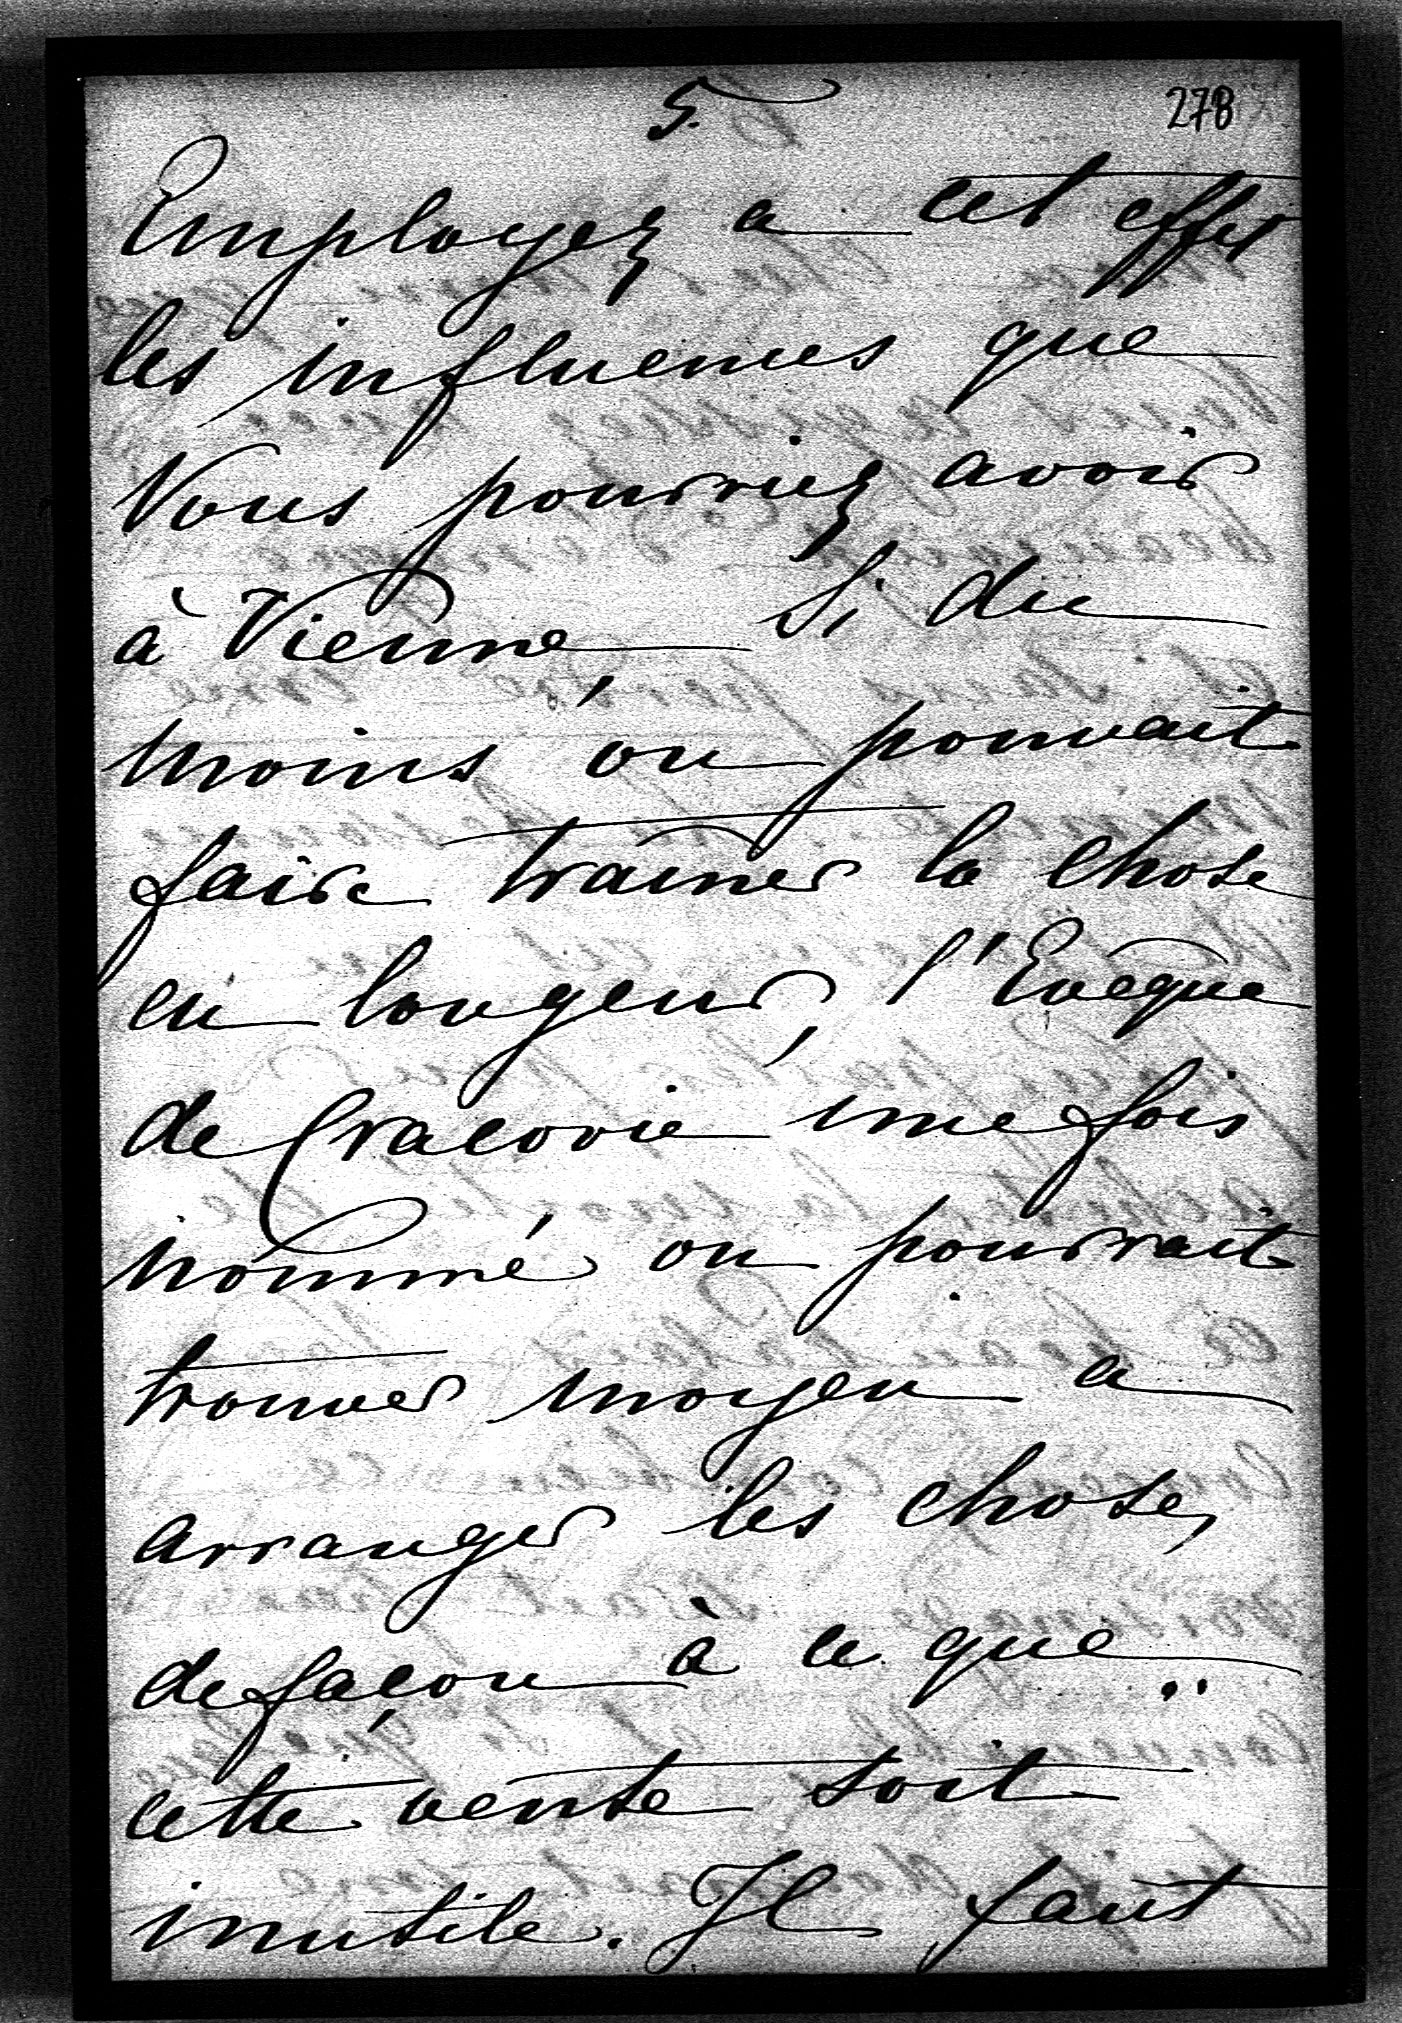 5.
278
Employez a cet effet
les influences que
Vous pourriez avoir
à Vienne, Si du
moins on pouvait
faire traîner la chose
en longeur, l'Evêque
de Cracovie une fois
nommé on pourrait
trouver moyen a
arranger les choses,
de façon à ce que
cette vente soit
inutile. Il faut